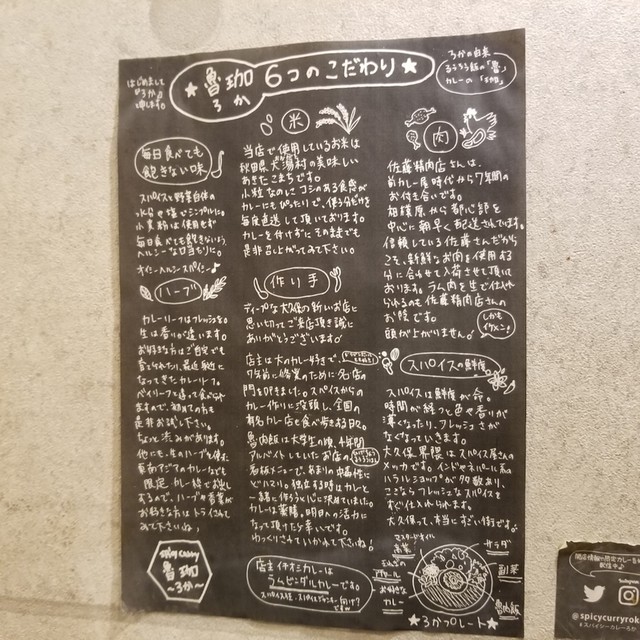 はじめまして
"ろか"と
申します。
★ 魯珈 6つのこだわり ★
ろか
ろかの由来
るうろう飯の「魯」
カレーの「珈」
毎日食べても
飽きない味
スパイスと野菜自体の
水分や塩でシンプルに。
小麦粉は使用せず
毎日食べても飽きないよう、
ヘルシーな口当たりに。
オイシーヘルシースパイシー♪
ハーブ
カレーリーフはフレッシュを。
生は香りが違います。
お好きな方はご自宅でも
育てられたり、最近身近に
なってきたカレーリーフ。
ベイリーフと違って食べられ
ますので、初めての方も
是非お試し下さい。
ちょっと渋みがあります。
他にも、生のハーブを使った
東南アジアのカレーなども
限定カレー枠でお出し
するので、ハーブや香菜が
お好きな方はトライされて
みて下さいね♪
spicy curry
魯珈
~ろか~
米
当店で使用しているお米は
秋田県大潟村の美味しい
あきたこまちです。
小粒なのにコシのある食感が
カレーにもぴったりで、使う分だけを
毎度直送して頂いております。
カレーを付けずにそのままでも
是非召し上がってみて下さい。
作り手
ディープな大久保の新しいお店に
思い切ってご来店頂き誠に
ありがとうございます♪
店主は大のカレー好きで、
7年前に修業のために名店の
門を叩きました。スパイスからの
カレー作りに没頭し、全国の
有名カレー店も食べ歩きする日々。
魯肉飯は大学生の頃、4年間
アルバイトしていたお店の
看板メニューで、あまりの中毒性に
ドハマり。独立する時はカレと
一緒に作ろうと心に決めていました。
カレーは薬膳。明日への活力に
なって頂けたら幸いです。
ゆっくりさせていかれて下さいね!
店主イチオシカレーは
ラムビンダルカレーです。
肉
佐藤精肉店さんは、
前カレー屋時代から7年間の
お付き合いです。
相模原から都心部を
中心に朝早く配送されています。
信頼している佐藤さんだから
こそ、新鮮なお肉を使用する
分に合わせて入荷させて頂いて
おります。ラム肉を生で仕入れ
られるのも佐藤精肉店さんの
お陰です。
頭が上がりません♪
しかも
イケメン!
スパイスの鮮度
スパイスは鮮度が命。
時間が経つと色や香りが
薄くなったり、フレッシュさが
なくなっていきます。
大久保界隈はスパイス屋さんの
メッカです。インドやネパール系の
ハラルショップが多数あり、
ここならフレッシュなスパイスを
すぐ仕入れられます。
大久保って、本当にすごい街です。
マスタードオイル
高菜
サラダ
副菜
お好きな
カレー
魯肉飯
★ろかプレート★
@spicycurryrok